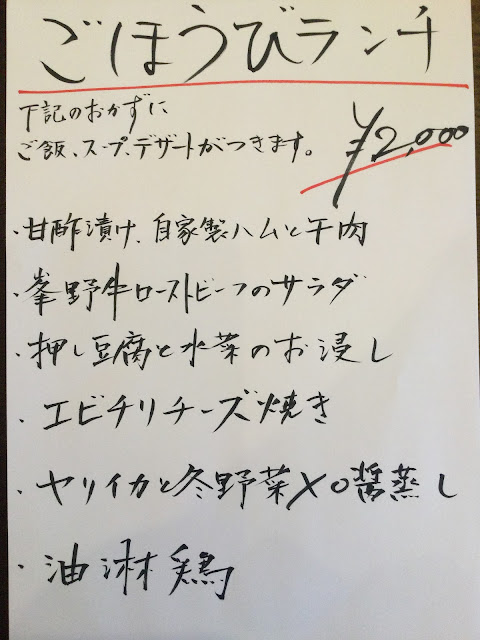 ごほうびランチ
下記のおかずに
ご飯、スープ、デザートがつきます。
¥2,000
・甘酢漬け、自家製ハムと干肉
・峯野牛ローストビーフのサラダ
・押し豆腐と水菜のお浸し
・エビチリチーズ焼き
・ヤリイカと冬野菜XO醤蒸し
・油淋鶏